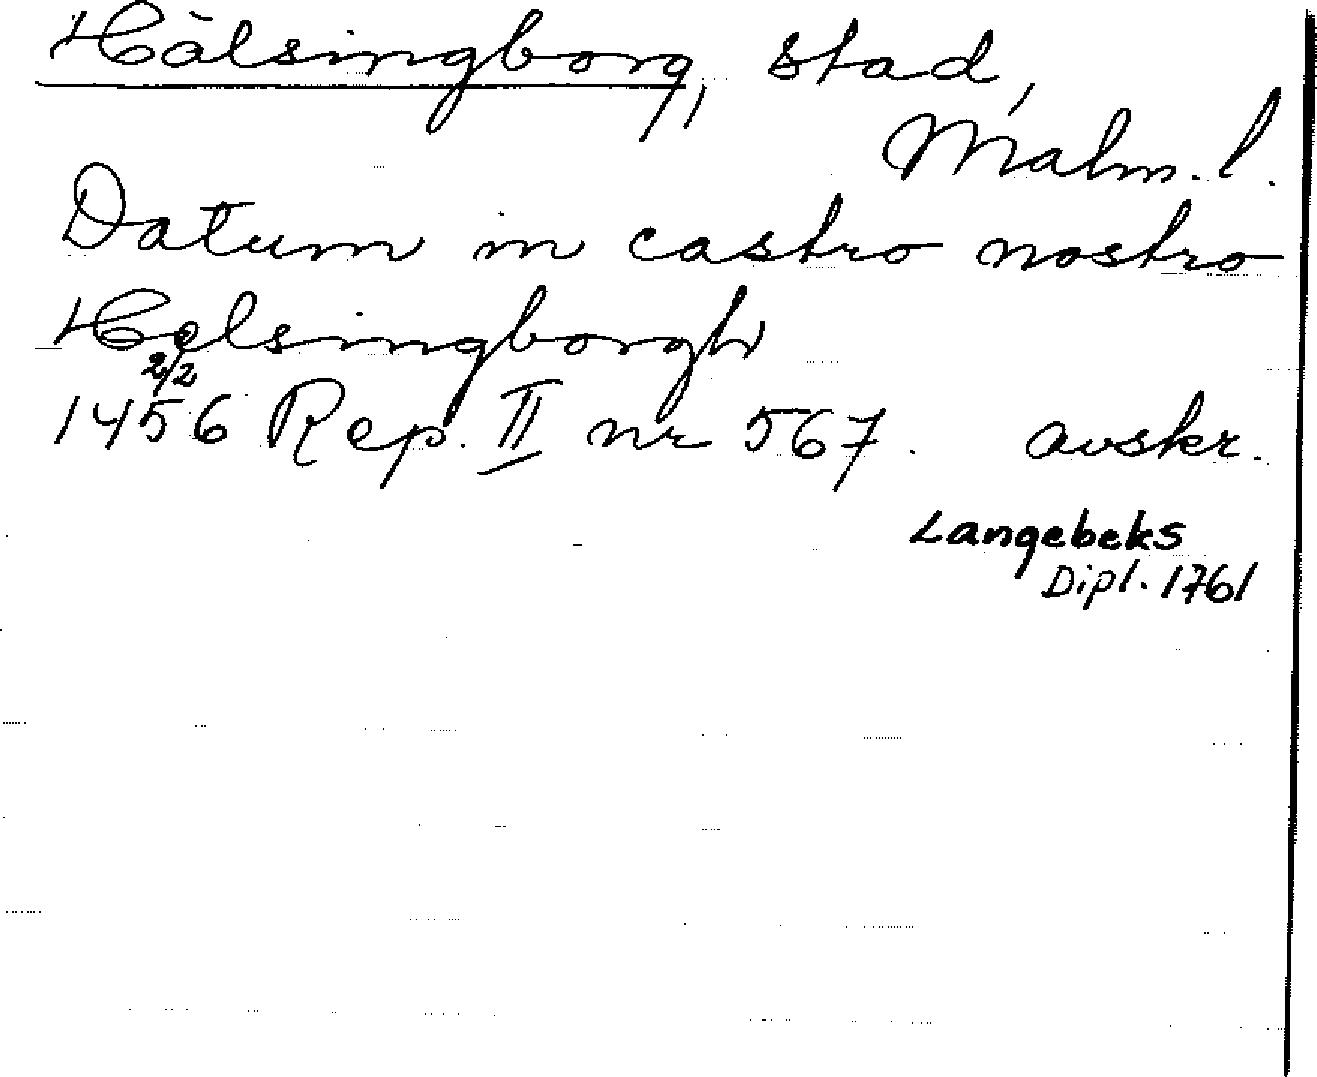 Hälsingborg, stad,
Malm. l.
Datum in castro nostro
Helsingborgh
2/2
1456 Rep. II nr 567. avskr.
Langebeks
Dipl. 1761